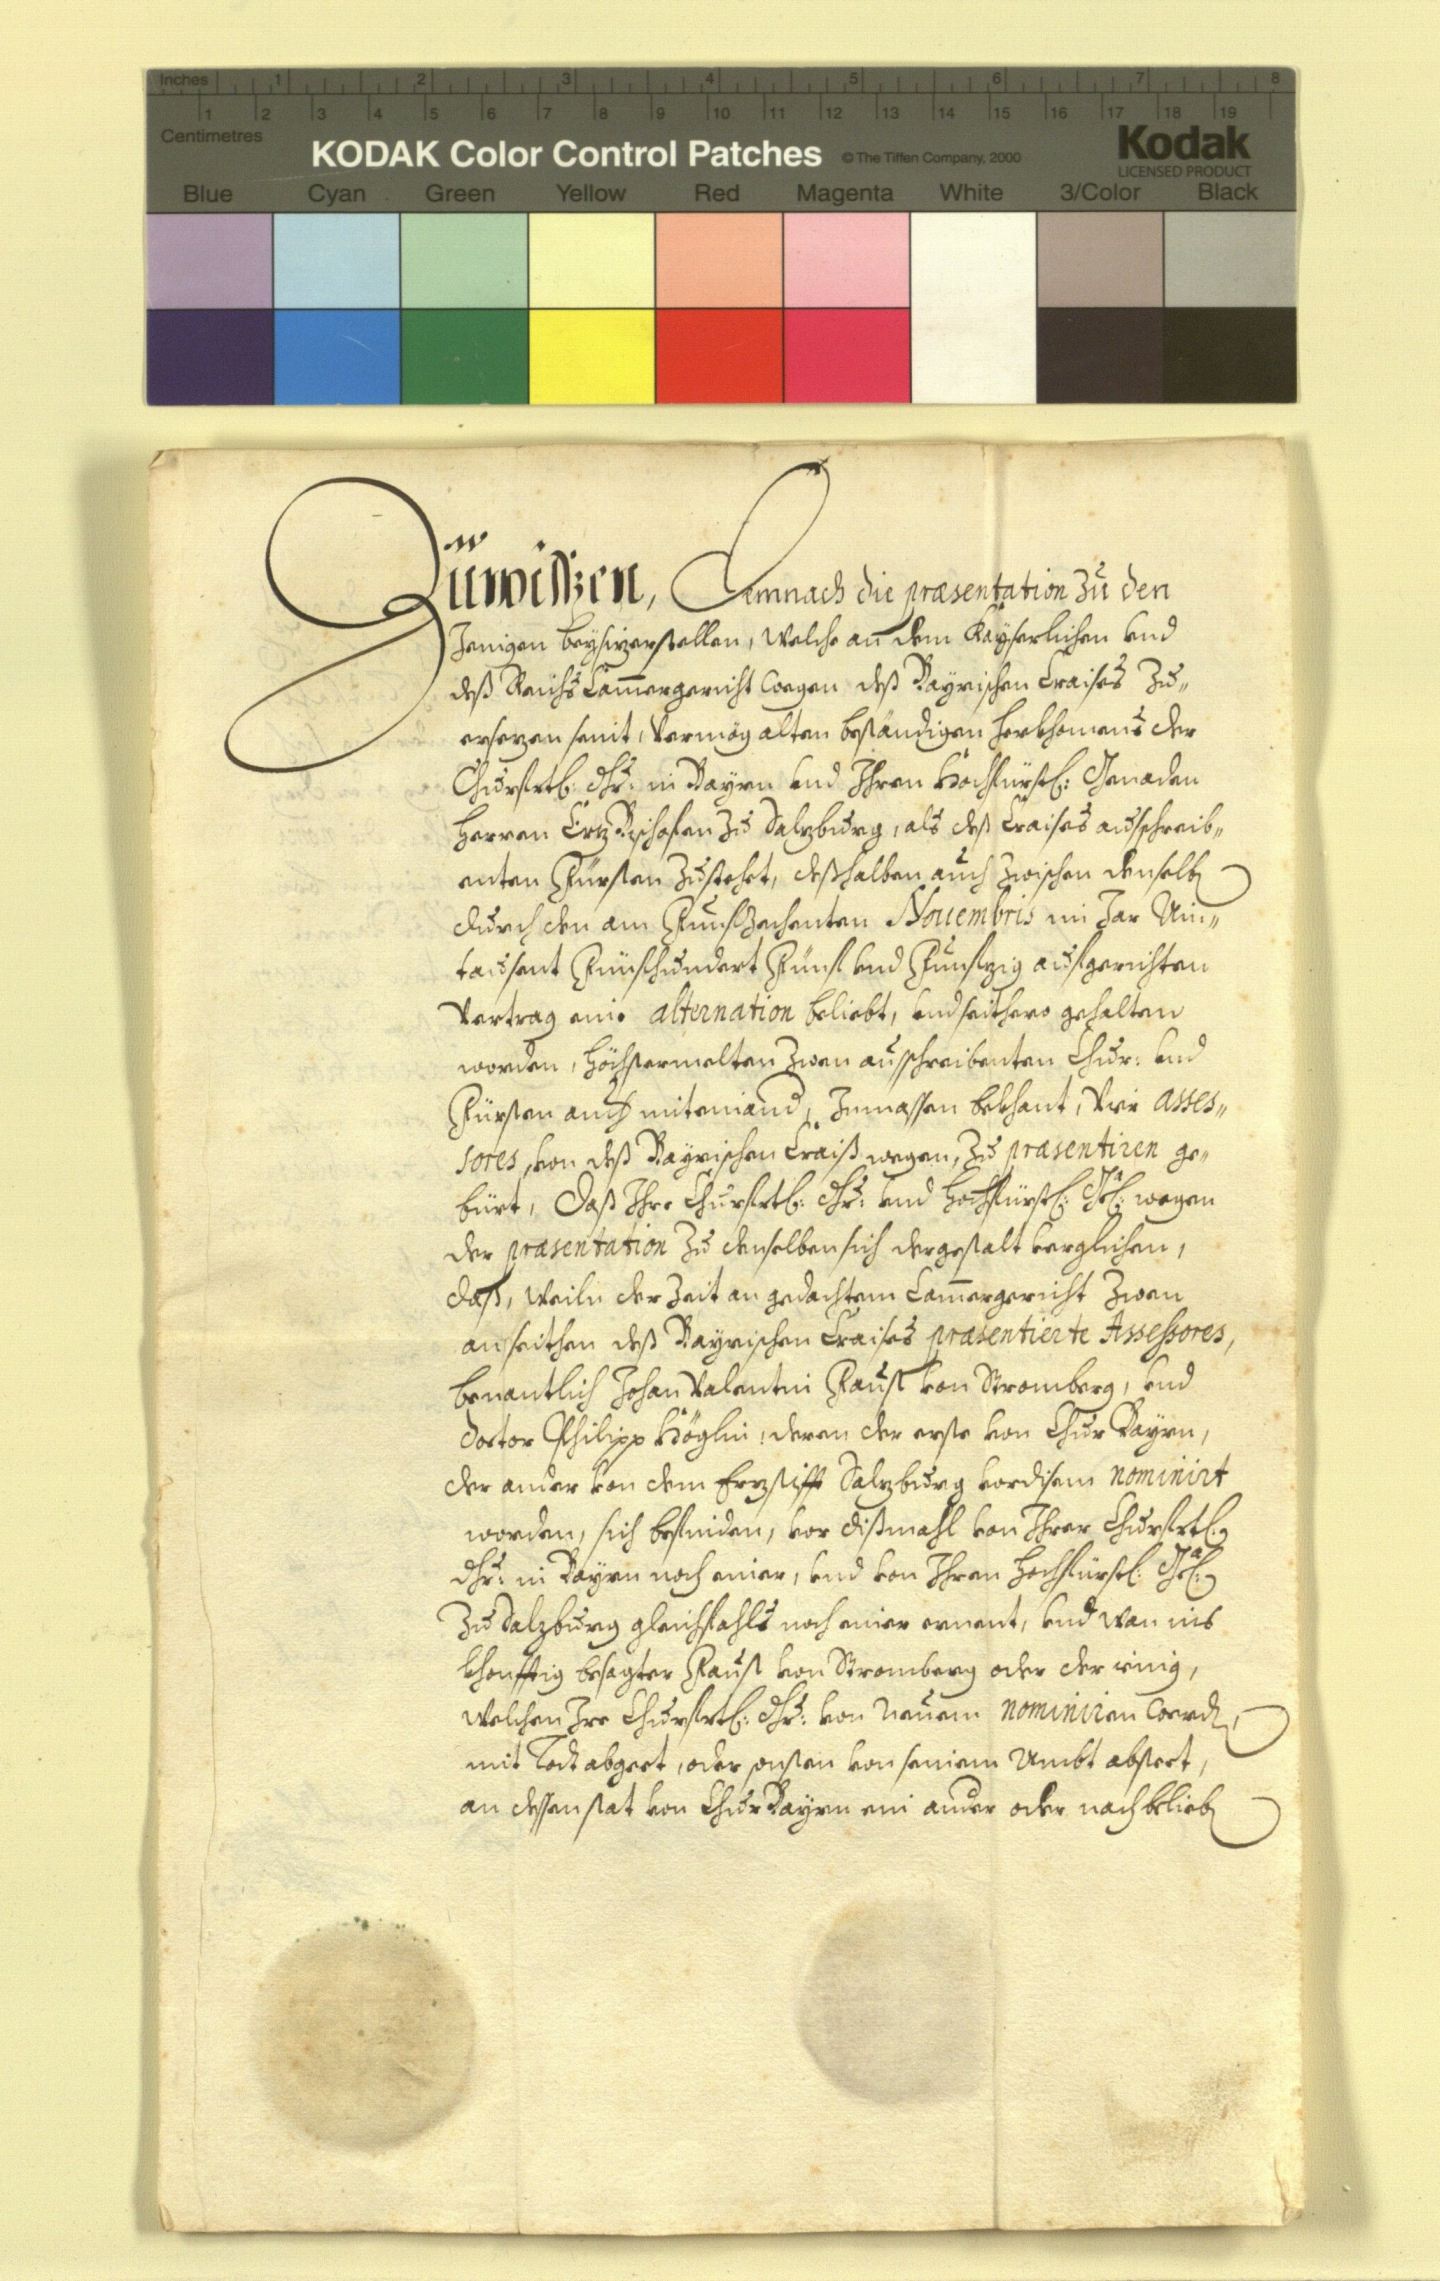 Inches 1 2 3 4 5 6 7 8
1 2 3 4 5 6 7 8 9 10 11 12 13 14 15 16 17 18 19
Centimetres
KODAK Color Control Patches © The Tiffen Company, 2000 Kodak
LICENSED PRODUCT
Blue Cyan Green Yellow Red Magenta White 3/Color Black
Zuwisszen, Demnach die præsentation zu den
Jenigen beysizerstellen, welche an dem Kayserlichen vnd
deß Reichs Cammergericht wegen deß Bayrischen Craises Zu„
ersezen seint, vermög alten beständigen herkhomens der
Churfrtl: Dhr: in Bayrn vnd Ihren Hochfürstl: Genaden
Herren Erz Bischofen zu Salzburg, als deß Craises ausschreib„
enten Fürsten zustehet, deßhalben auch zwischen denselb
durch den am Funfzechenten Nouembris im Jar Ain„
tausent Fünfhundert Fünf vnd Funfzig aufgerichten
Vertrag eine alternation beliebt, vnd seithero gehalten
worden, höchstermelten zwen ausschreibenten Chur: vnd
Fürsten auch miteinand, Inmassen bekhant, vier asses„
sores, von deß Bayrischen Craiß wegen, zu præsentiren ge„
bürt, Daß Ihre Churfrtl: Dhr: vnd Hochfürstl: Gl: wegen
der præsentation zu denselben sich dergestalt verglichen,
daß, weiln der Zeit an gedachtem Cammergericht zwen
an seithen deß Bayrischen Craises præsentierte Assessores,
benantlich Johan Valentin Faust von Stromberg, vnd
Doctor Philipp Höglin, deren der erste von Chur Bayrn,
der ander von dem Erzstifft Salzburg vordisem nominirt
worden, sich befinden, vor dißmahl von Ihrer Churfrtl:
Dhr: in Bayrn noch einer, vnd von Ihren Hochfürstl: Gl:
zu Salzburg gleichfahls noch einer ernent, vnd wan ins
khonfftig besagter Faust von Stromberg oder der einig,
welchen Ire Churfrtl: Dhr: von Neuem nominiren werd,
mit Todt abgeet, oder sonsten von seinem Ambt absteet,
an dessen stat von Chur Bayrn ein ander oder nach belieb